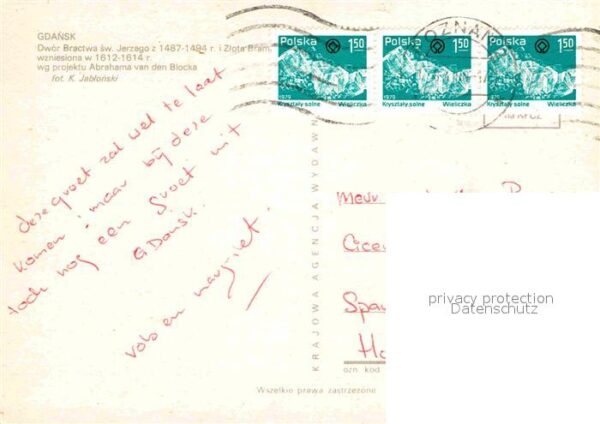 GDAŃSK
Dwór Bractwa św. Jerzego z 1487-1494 r. i Złota Brama
wzniesiona w 1612-1614 r.
wg projektu Abrahama van den Blocka
fot. K. Jabłoński
Polska 1,50
1979
Kryształy solne Wieliczka
Polska 1,50
1979
Kryształy solne Wieliczka
Polska 1,50
Kryształy solne Wieliczka
POZNAŃ
deze groet zal wel te laat
komen, maar bij deze
toch nog een groet uit
Gdańsk.
en margriet.
KRAJOWA AGENCJA WYDAWN
Mevr
Cice
Spa
Ho
ozn. kod
Wszelkie prawa zastrzeżone
privacy protection
Datenschutz